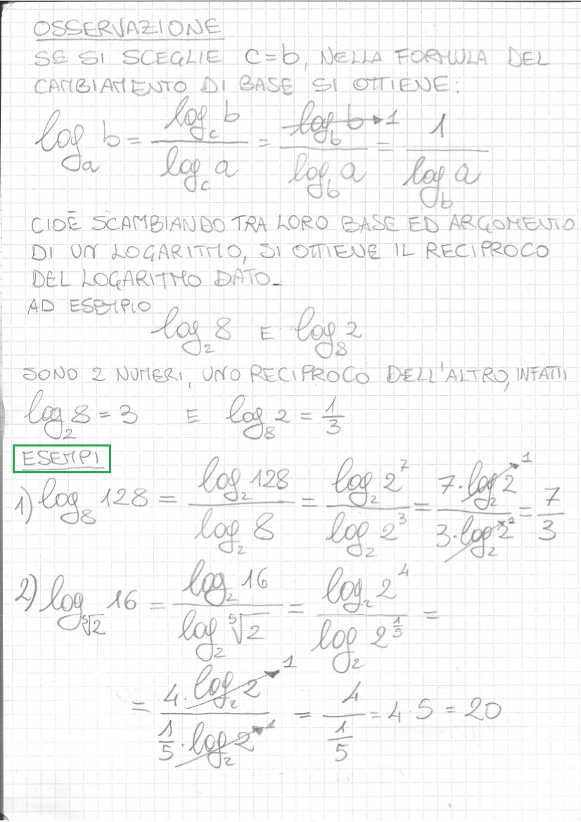 OSSERVAZIONE
SE SI SCEGLIE C=b, NELLA FORMULA DEL
CAMBIAMENTO DI BASE SI OTTIENE:
log_a b = log_c b / log_c a = log_b b → 1 / log_b a = 1 / log_b a
CIOÈ SCAMBIANDO TRA LORO BASE ED ARGOMENTO
DI UN LOGARITMO, SI OTTIENE IL RECIPROCO
DEL LOGARITMO DATO_
AD ESEMPIO
log_2 8 E log_8 2
SONO 2 NUMERI, UNO RECIPROCO DELL'ALTRO, INFATTI
log_2 8 = 3 E log_8 2 = 1/3
ESEMPI
1) log_8 128 = log_2 128 / log_2 8 = log_2 2^7 / log_2 2^3 = 7·log_2 2 → 1 / 3·log_2 2 → 1 = 7/3
2) log_⁵√2 16 = log_2 16 / log_2 ⁵√2 = log_2 2^4 / log_2 2^(1/5) =
= 4·log_2 2 → 1 / (1/5)·log_2 2 → 1 = 4 / (1/5) = 4·5 = 20